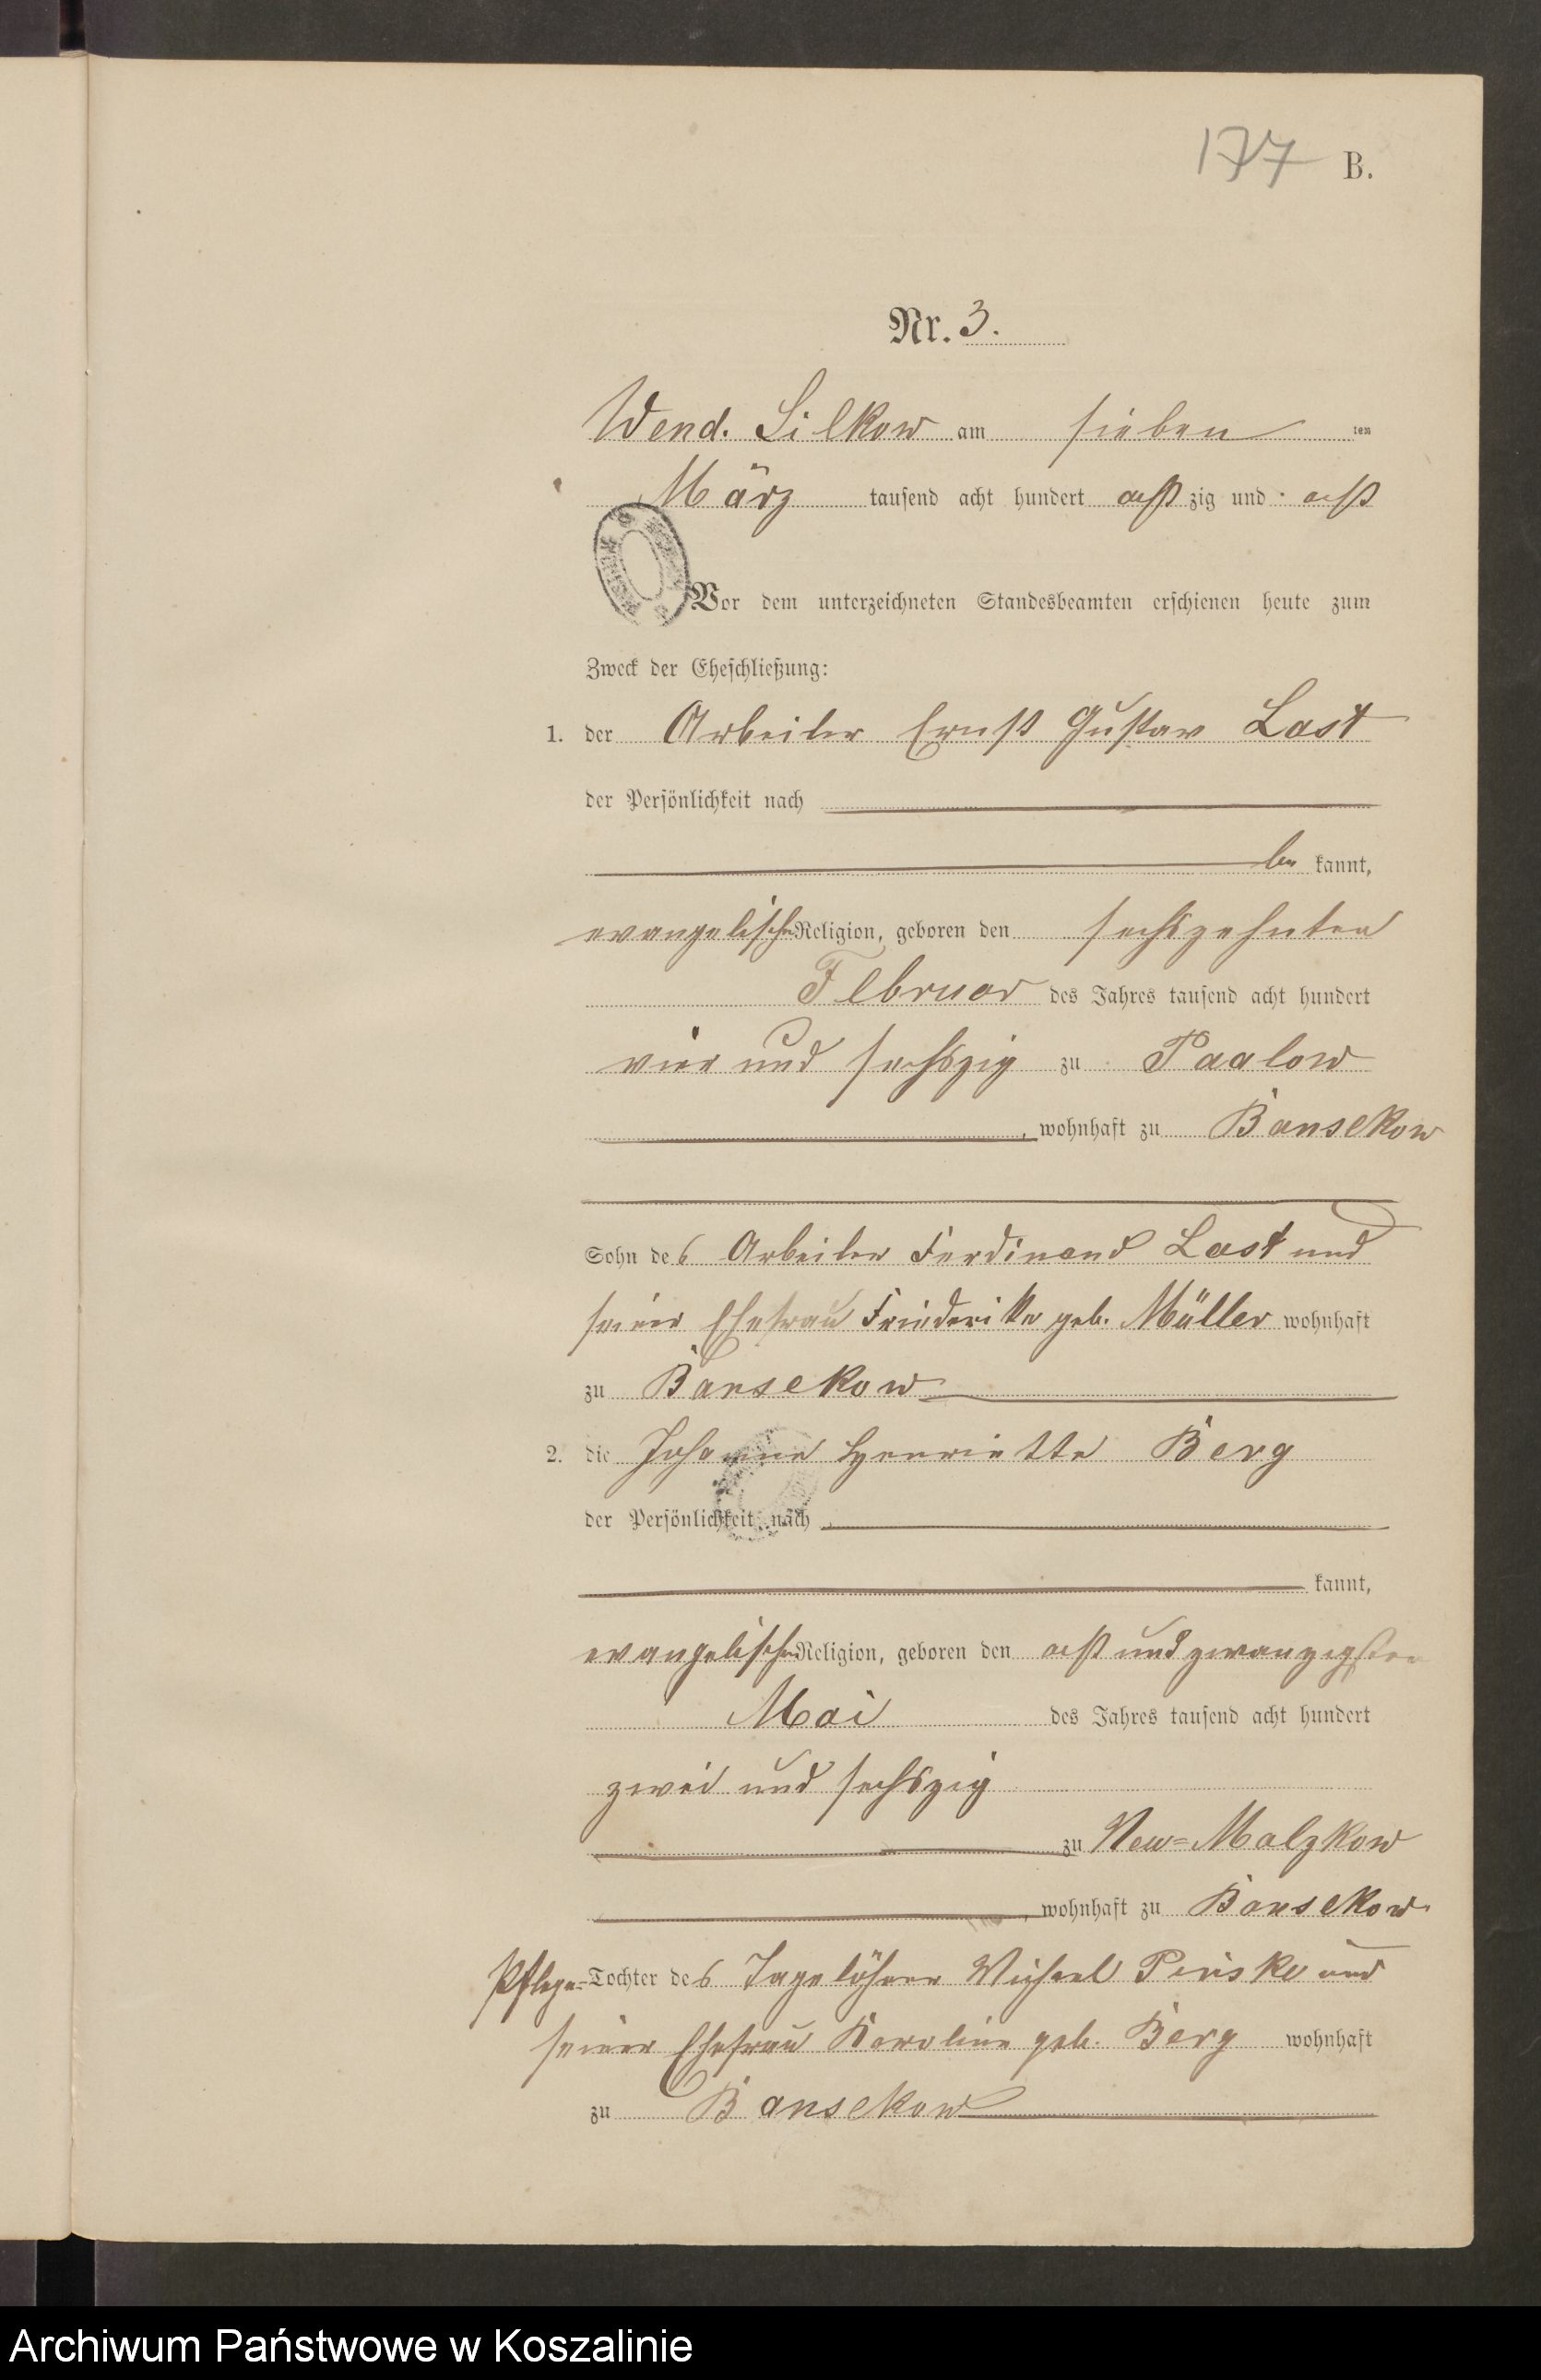 177 B.
Nr. 3.
Wend. Silkow am sieben ten
März tausend acht hundert acht zig und acht
Vor dem unterzeichneten Standesbeamten erschienen heute zum
Zweck der Eheschließung:
1. der Arbeiter Ernst Gustav Last
der Persönlichkeit nach
be kannt,
evangelischer Religion, geboren den sechszehnten
Februar des Jahres tausend acht hundert
vier und sechszig zu Paalow
, wohnhaft zu Bansekow
Sohn des Arbeiter Ferdinand Last und
seiner Ehefrau Friederike geb. Müller wohnhaft
zu Bansekow
2. die Johanne Henriette Berg
der Persönlichkeit nach
kannt,
evangelischer Religion, geboren den acht und zwanzigsten
Mai des Jahres tausend acht hundert
zwei und sechszig
zu Neu=Malzkow
, wohnhaft zu Bansekow
Pflege=Tochter des Tagelöhner Michael und
seiner Ehefrau Karoline geb. Berg wohnhaft
zu Bansekow
Archiwum Państwowe w Koszalinie